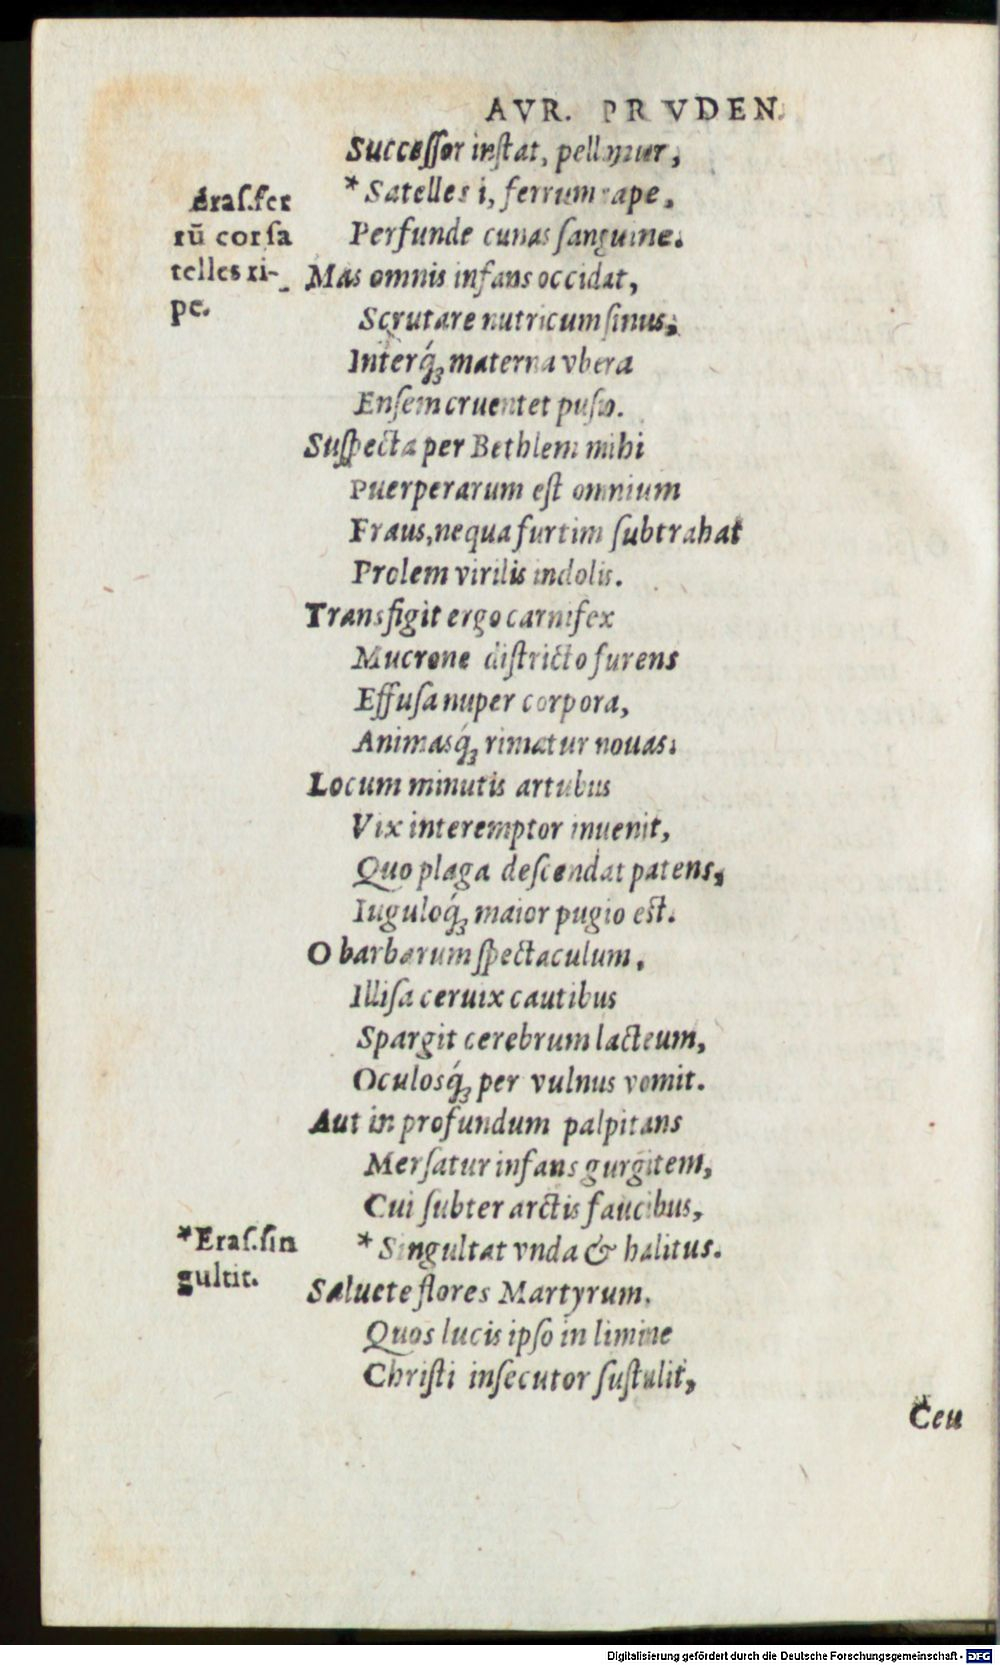 AVR. PRVDEN.
Succeſſor inſtat, pellimur,
* Satelles i, ferrum rape,
Perfunde cunas ſanguine.
Eraſ. fer
rũ cor ſa
telles ri-
pe.
Mas omnis infans occidat,
Scrutare nutricum ſinus,
Interq́ꝫ materna vbera
Enſem cruentet puſio.
Suſpecta per Bethlem mihi
Puerperarum eſt omnium
Fraus, ne qua furtim ſubtrahat
Prolem virilis indolis.
Transfigit ergo carnifex
Mucrone diſtricto furens
Effuſa nuper corpora,
Animasq́ꝫ rimatur nouas.
Locum minutis artubus
Vix interemptor inuenit,
Quo plaga deſcendat patens,
Iuguloq́ꝫ maior pugio est.
O barbarum ſpectaculum,
Illiſa ceruix cautibus
Spargit cerebrum lacteum,
Oculosq́ꝫ per vulnus vomit.
Aut in profundum palpitans
Merſatur infans gurgitem,
Cui ſubter arctis faucibus,
* Singultat vnda & halitus.
*Eraſ. ſin
gultit.
Saluete flores Martyrum,
Quos lucis ipſo in limine
Chriſti inſecutor ſuſtulit,
Ceu
Digitalisierung gefördert durch die Deutsche Forschungsgemeinschaft - DFG